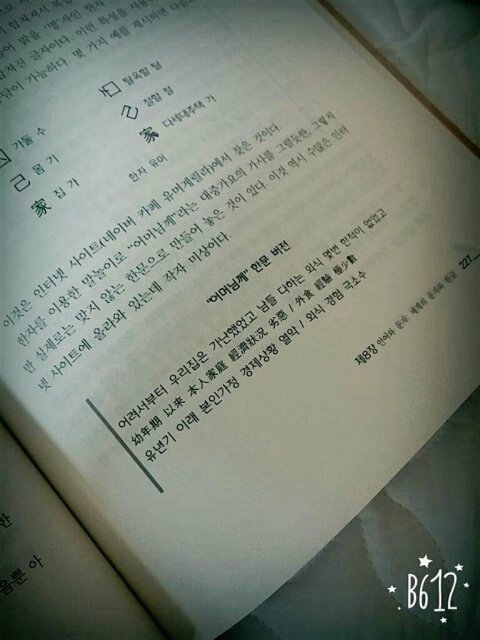 합자전 글자이다. 이런 특성을
당이 가능하다. 몇 가지 예를 제시하면 다음
가둘 수
탈옥할 탈
己 몸 기
접할 접
家 집 가
家 다세대주택 가
한자 유머
이것은 인터넷 사이트(네이버 카페 유머게릴라)에서 찾은 것이다.
한자를 이용한 말놀이로 "어머님께"라는 대중가요의 가사를 그럴듯한, 그렇지
만 실제로는 맞지 않는 한문으로 만들어 놓은 것이 있다. 이것 역시 수많은 인터
넷 사이트에 올라와 있는데 작자 미상이다.
"어머님께" 한문 버전
어려서부터 우리집은 가난했었고 남들 다하는 외식 몇번 한적이 없었고
幼年期 以來 本人家庭 經濟狀況 劣惡 / 外食 經驗 極少數
유년기 이래 본인가정 경제상황 열악 / 외식 경험 극소수
제8장 언어와 문자: 세계의 문자와 한글 227
한
음뿐 아
B612